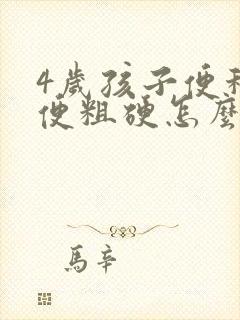 4歲孩子便
便粗硬怎麼
馬辛